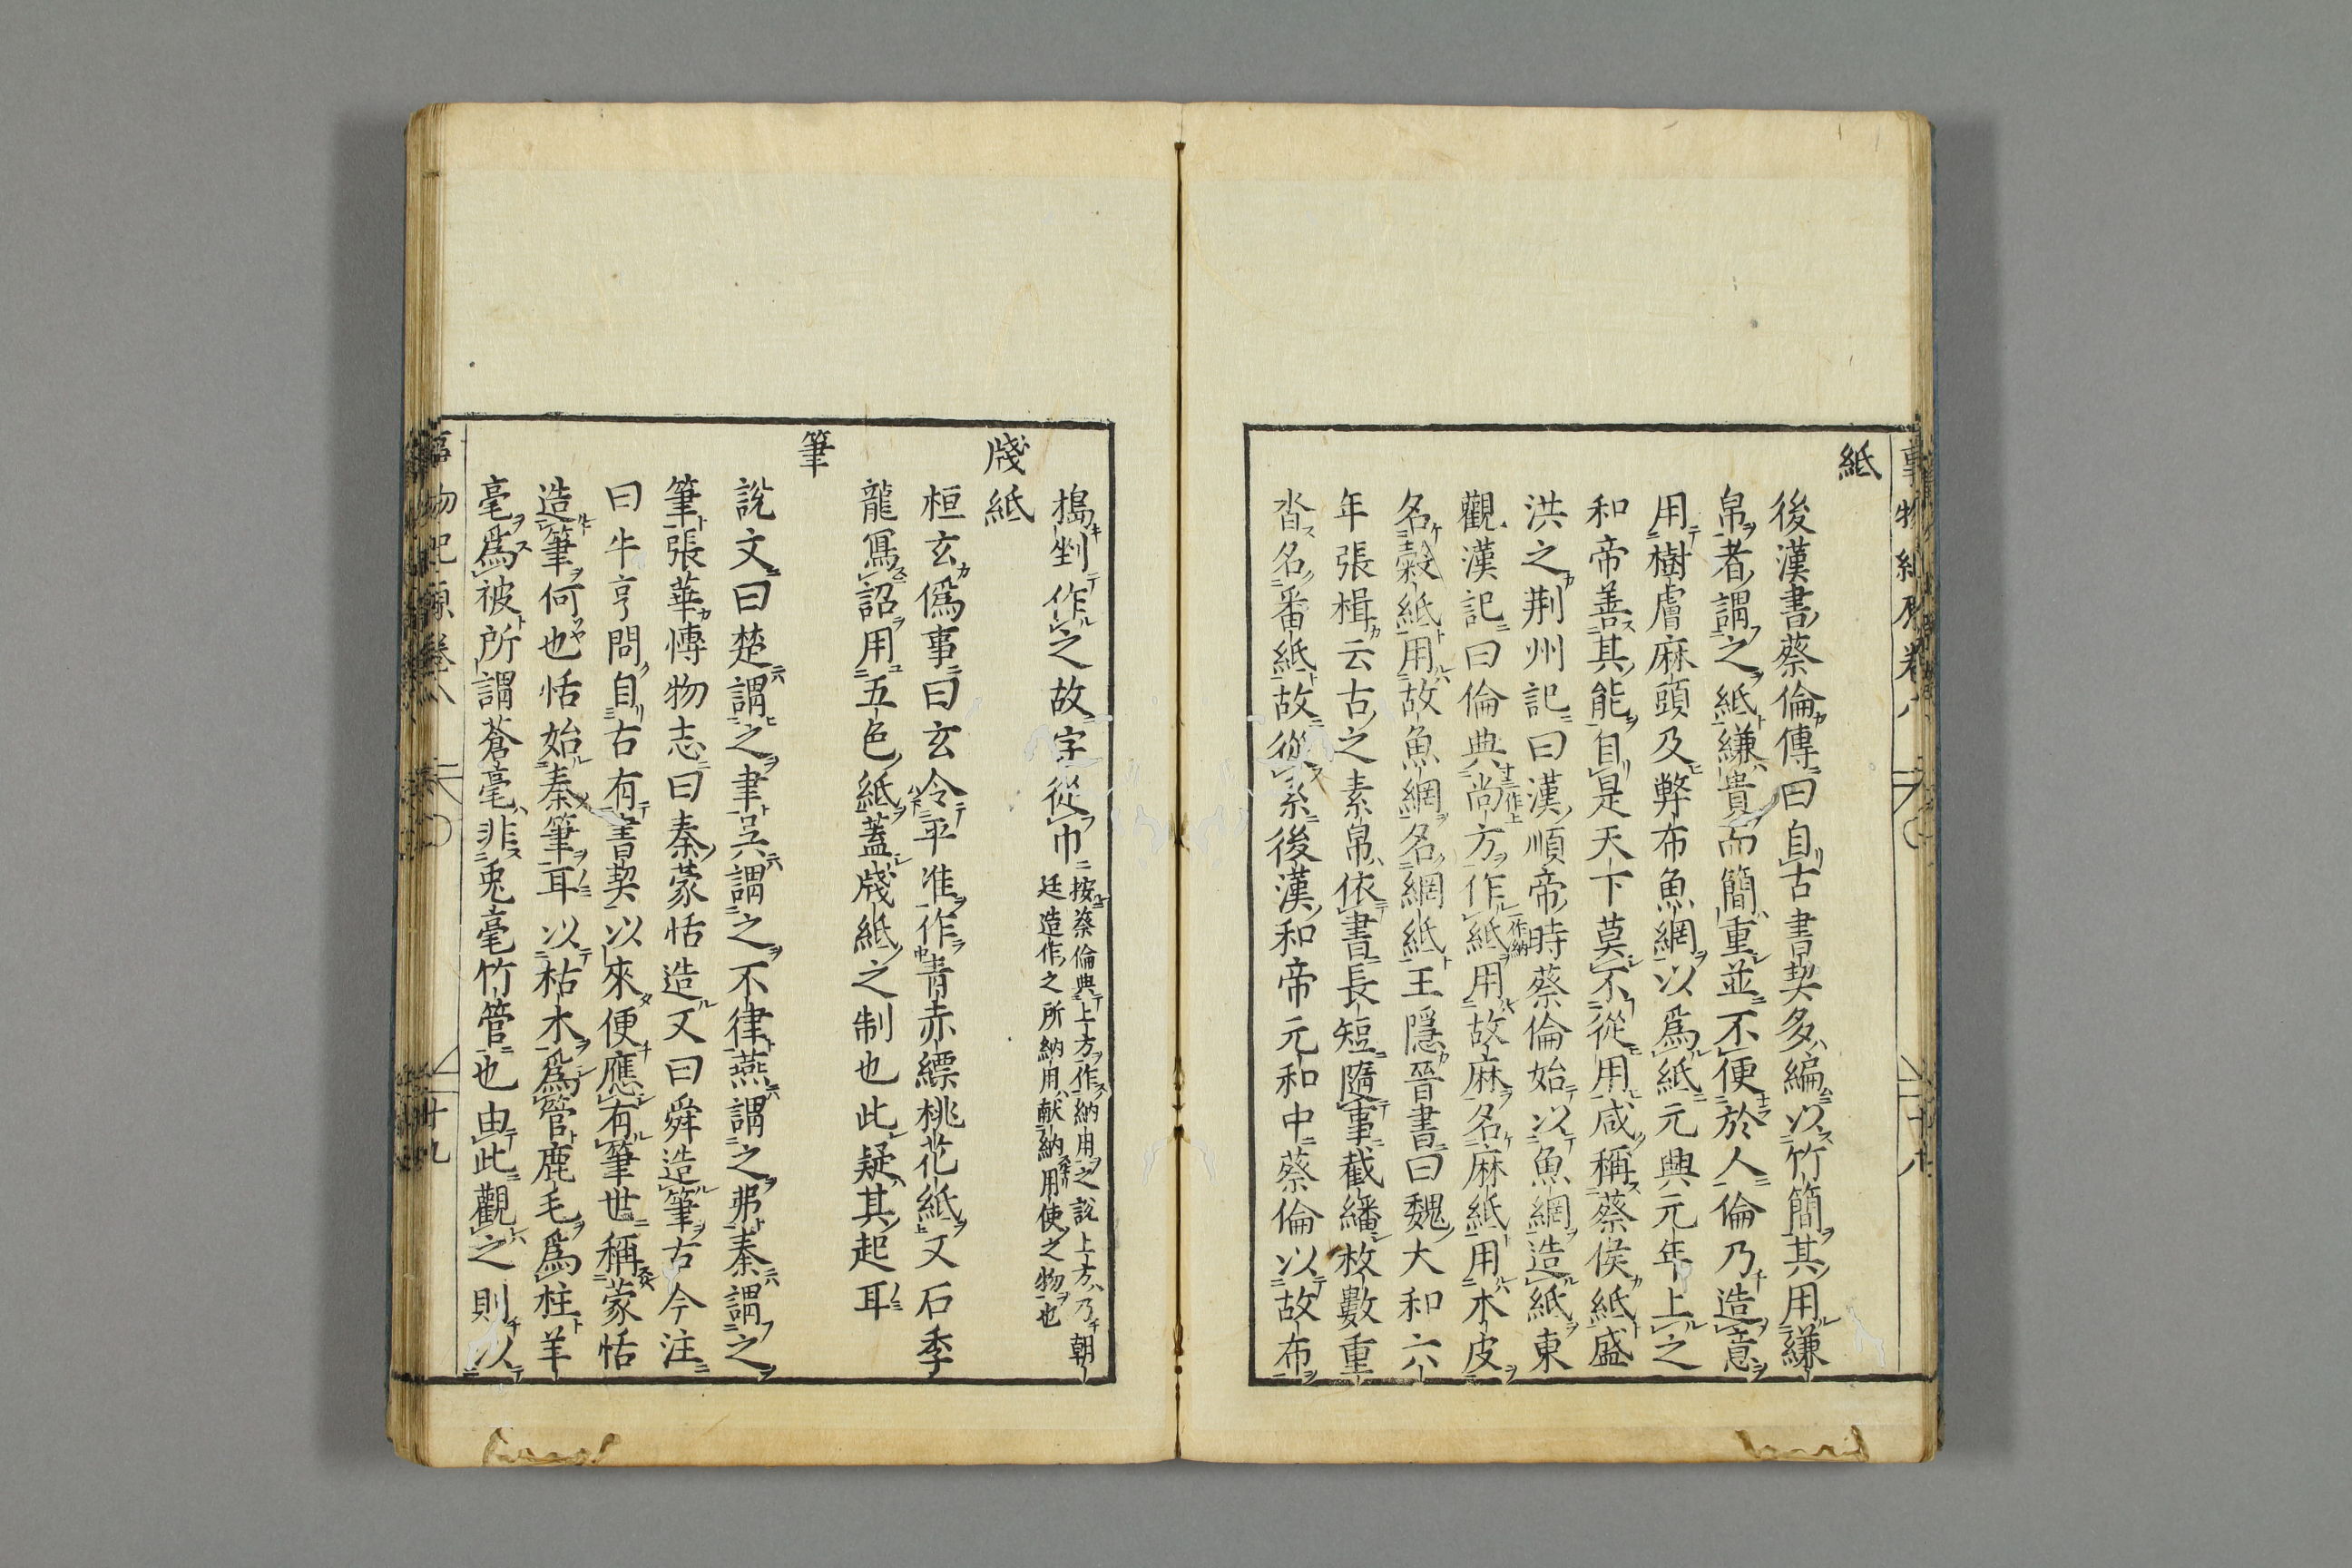 紙
後漢書蔡倫傳曰自古書契多編以竹簡其用縑
帛者謂之紙縑貴而簡重並不便於人倫乃造意
用樹膚麻頭及弊布魚網以爲紙元興元年上之
和帝善其能自是天下莫不從用咸稱蔡侯紙盛
洪之荆州記曰漢順帝時蔡倫始以魚網造紙東
觀漢記曰倫典尚方作紙用故麻名麻紙用木皮
名穀紙用故魚網名網紙王隱晉書曰魏大和六
年張楫云古之素帛依書長短隨事截繙枚數重
沓名番紙故從系後漢和帝元和中蔡倫以故布
搗剉作之故字從巾
按蔡倫典上方作納用之說上方乃朝
廷造作之所納用献納用使之物也
牋紙
桓玄僞事曰玄令平准作青赤縹桃花紙又石季
龍寫詔用五色紙蓋牋紙之制也此疑其起耳
筆
說文曰楚謂之聿吳謂之不律燕謂之弗秦謂之
筆張華博物志曰秦蒙恬造又曰舜造筆古今注
曰牛亨問自古有書契以來便應有筆世稱蒙恬
造筆何也恬始秦筆耳以枯木爲管鹿毛爲柱羊
毫爲被所謂蒼毫非兎毫竹管也由此觀之則以
物紀原卷八
廿九